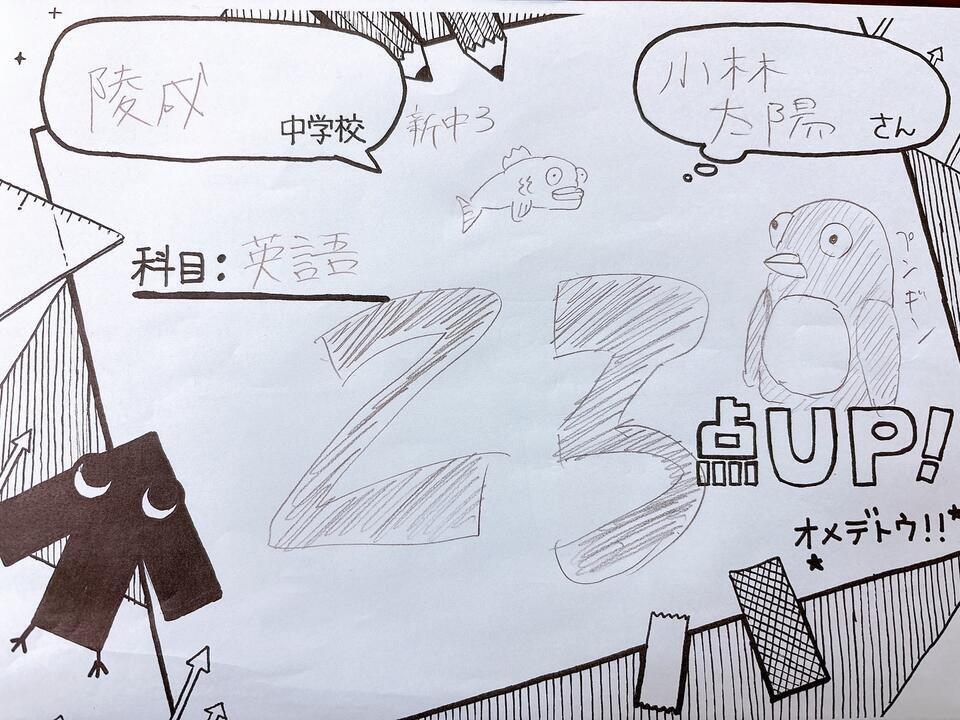 陵成
中学校
新中3
小林
太陽
さん
科目：英語
23
点UP!
プンギン
オメデトウ!!